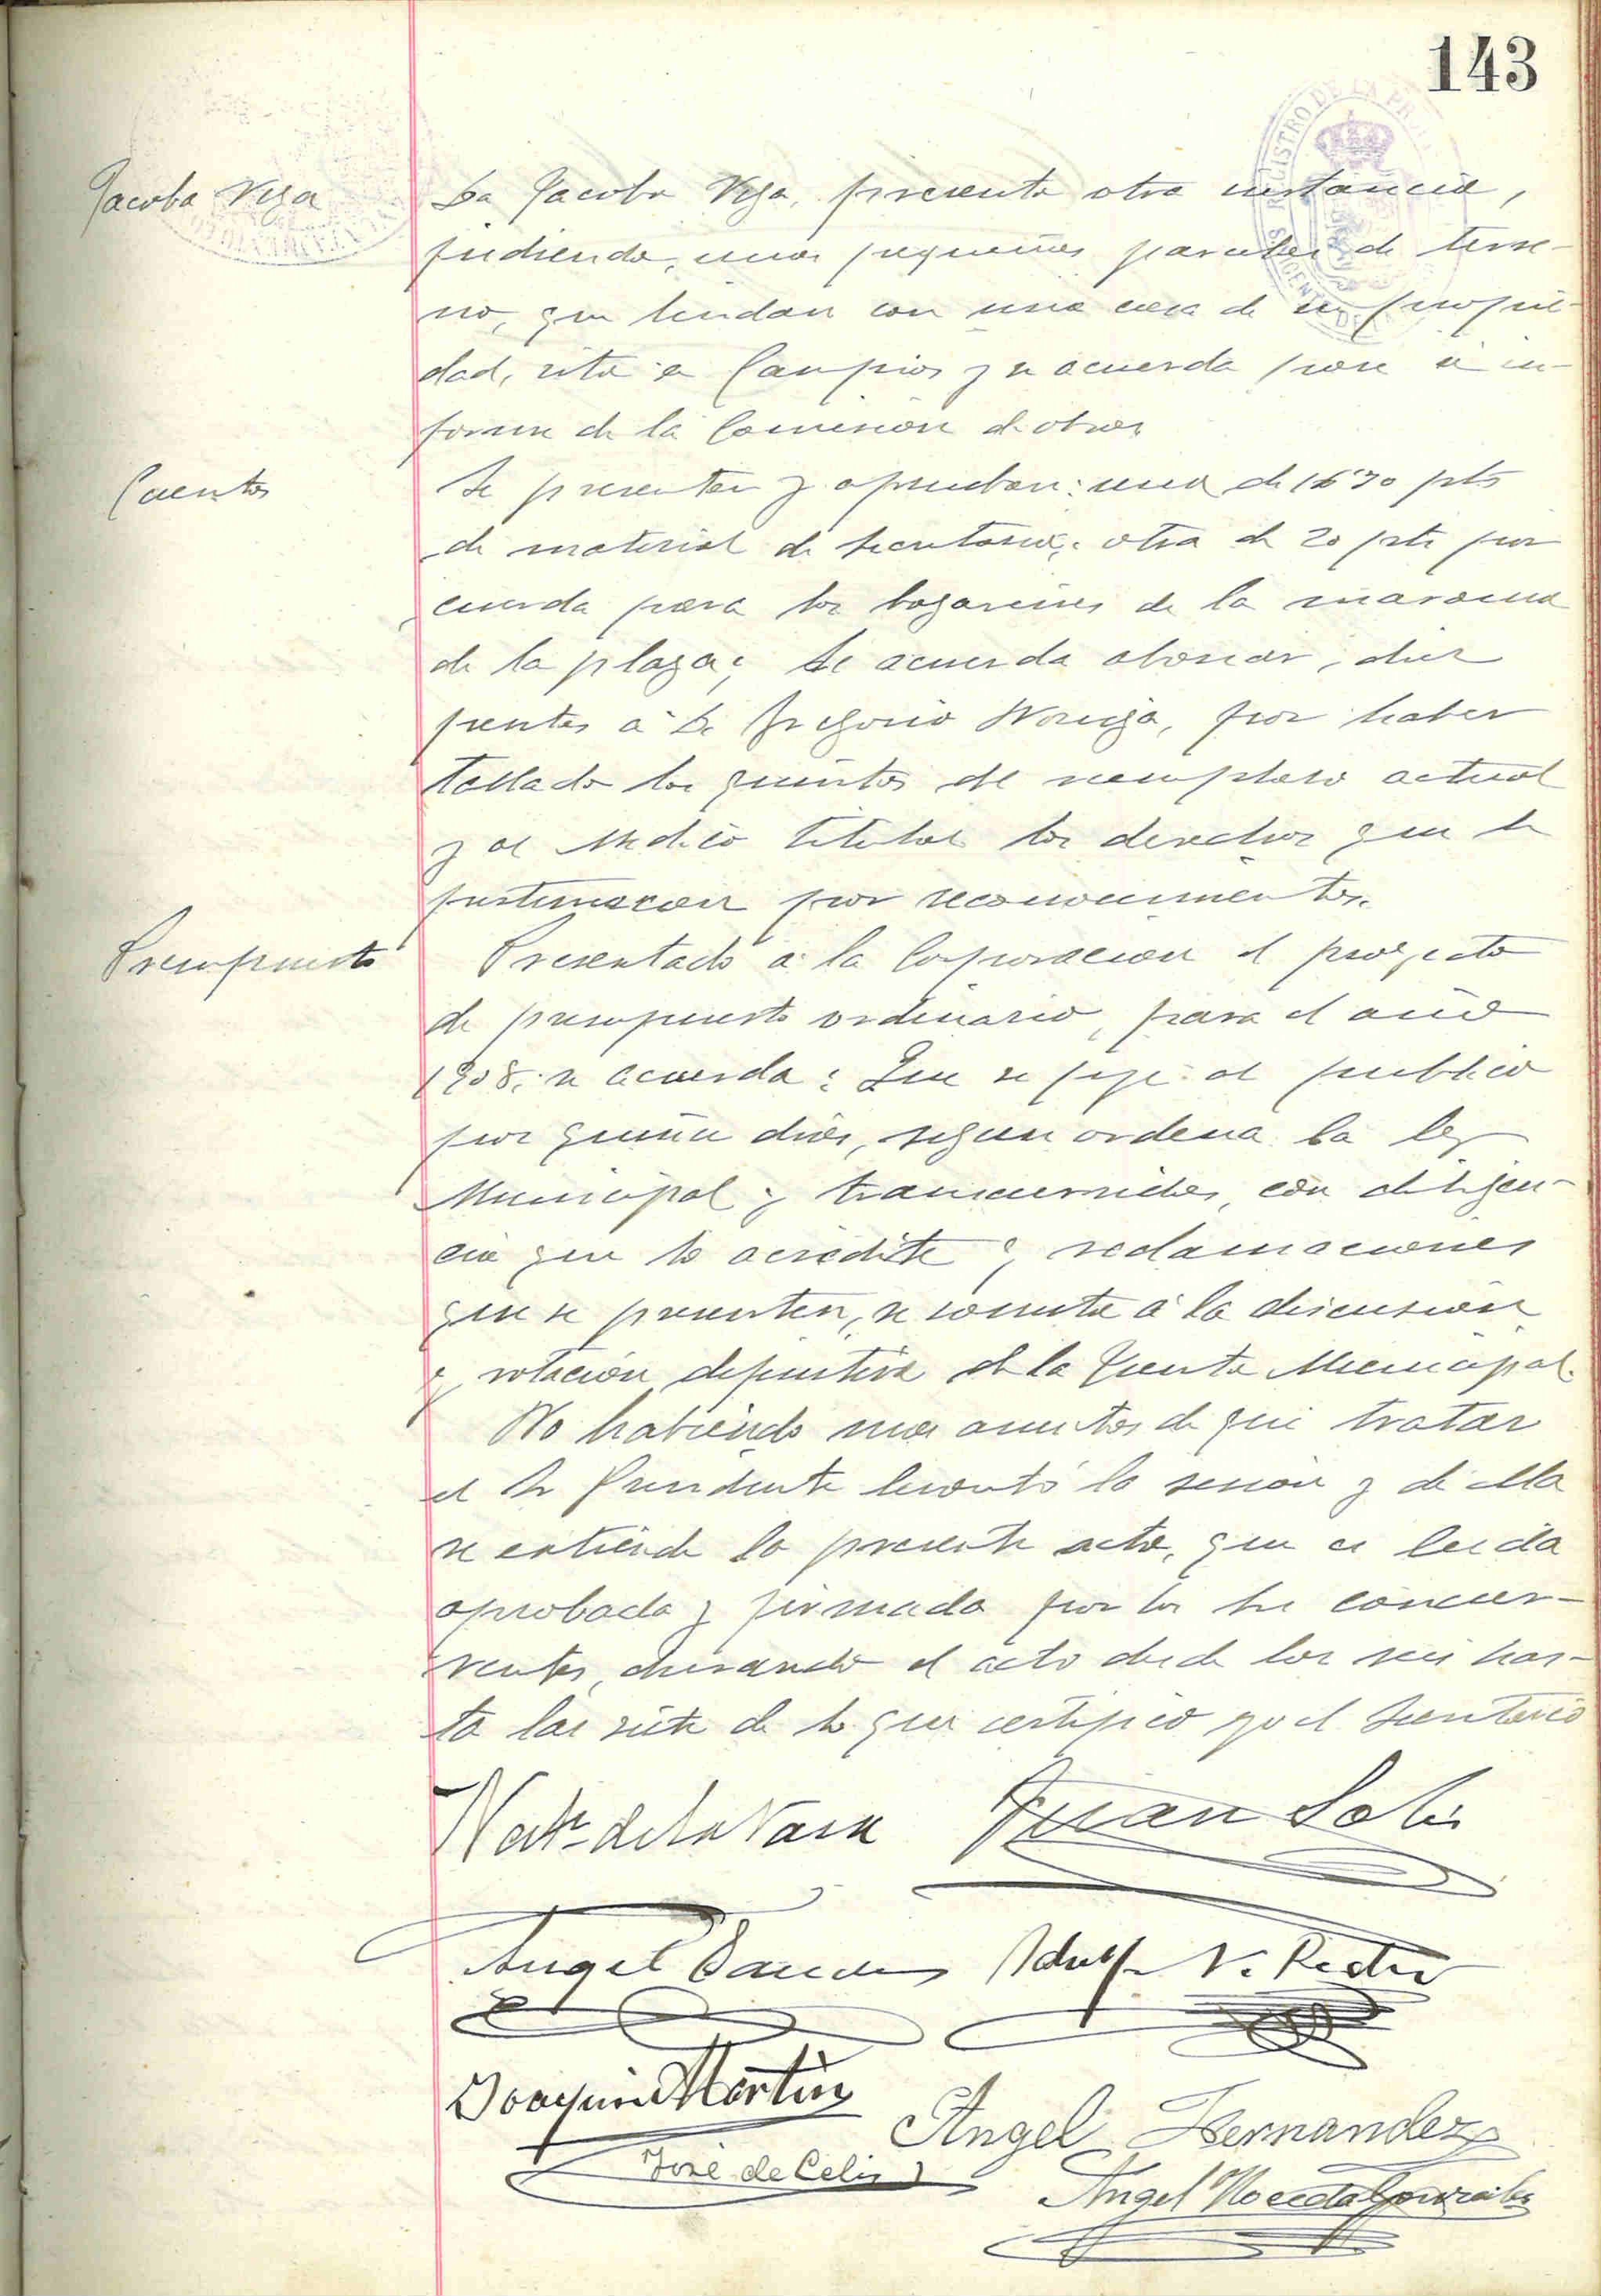 143
Jacoba Vega
Da Jacoba Vega, presenta otra instancia,
pidiendo, unas pequeñas parcelas de terre-
no, que lindan con una casa de su propie-
dad, sita en Campios y se acuerda pase á in-
forme de la Comision de obras
Cuentas
Se presentan y aprueban: una de pts
de material de Secretaria; otra de 20 pts por
cuerda para los de la maroma
de la plaza; Se acuerda abonar, diez
pesetas á Dn Gregorio Noriega, por haber
tallado los quintos del reemplazo actual
y al Medico titular los derechos que le
pertenezcan por reconocimientos.
Presupuesto
Presentado á la Corporacion el proyecto
de presupuesto ordinario, para el año
1908, se acuerda: Que se fije al publico
por quince dias, segun ordena la ley
Municipal y transcurridos, con diligen-
cia que lo acredite y reclamaciones
que se presenten, se someta á la discusion
y votación definitiva de la Junta Municipal.
No habiendo mas asuntos de que tratar
el Sr Presidente levantó la sesion y de ella
se extiende la presente acta, que es leida
aprobada y firmada por los Sres concur-
rentes, durando el acto desde las seis has-
ta las siete de lo que certifico yo el Secretario
de la Vara Juan Solis
Angel Adolfo V.
Joaquin Martin
Angel Hernandez
José de Celis
Angel Noceda Gonzalez